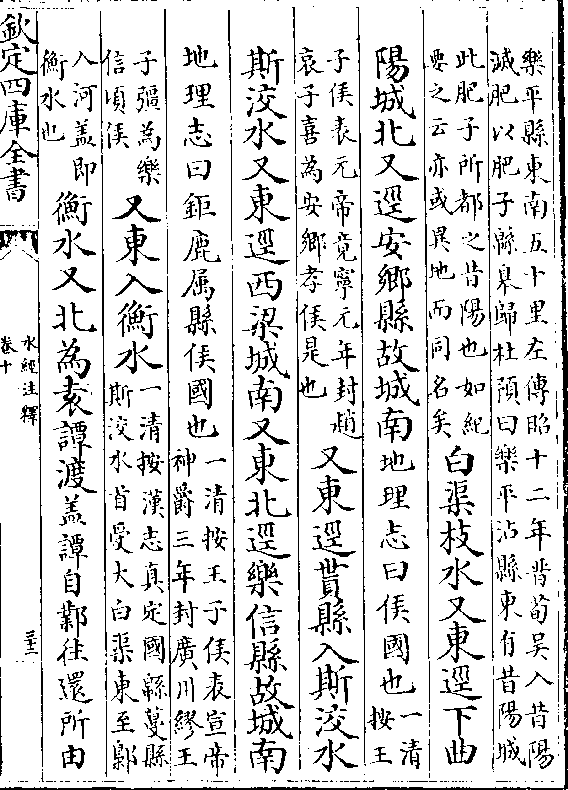 樂平縣東南五十里左傳昭十二年晉荀吳入昔陽
滅肥以肥子縣皋歸杜預曰樂平沾縣東有昔陽城
此肥子所都之昔陽也如紀
要之云亦或異地而同名矣
白渠枝水又東逕下曲
陽城北又逕安鄉縣故城南地理志曰侯國也
一清
按王
子侯表元帝竟寧元年封趙
哀子喜為安鄉孝侯是也
又東逕貰縣入斯洨水
斯洨水又東逕西梁城南又東北逕樂信縣故城南
地理志曰鉅鹿属縣侯國也
一清按王子侯表宣帝
神爵三年封廣川繆王
子彊為樂
信頃侯
又東入衡水
一清按漢志真定國緜蔓縣
斯洨水首受大白渠東至鄡
入河盖即
衡水也
衡水又北為袁譚渡盖譚自鄴往還所由
欽定四庫全書
水經注釋
卷十